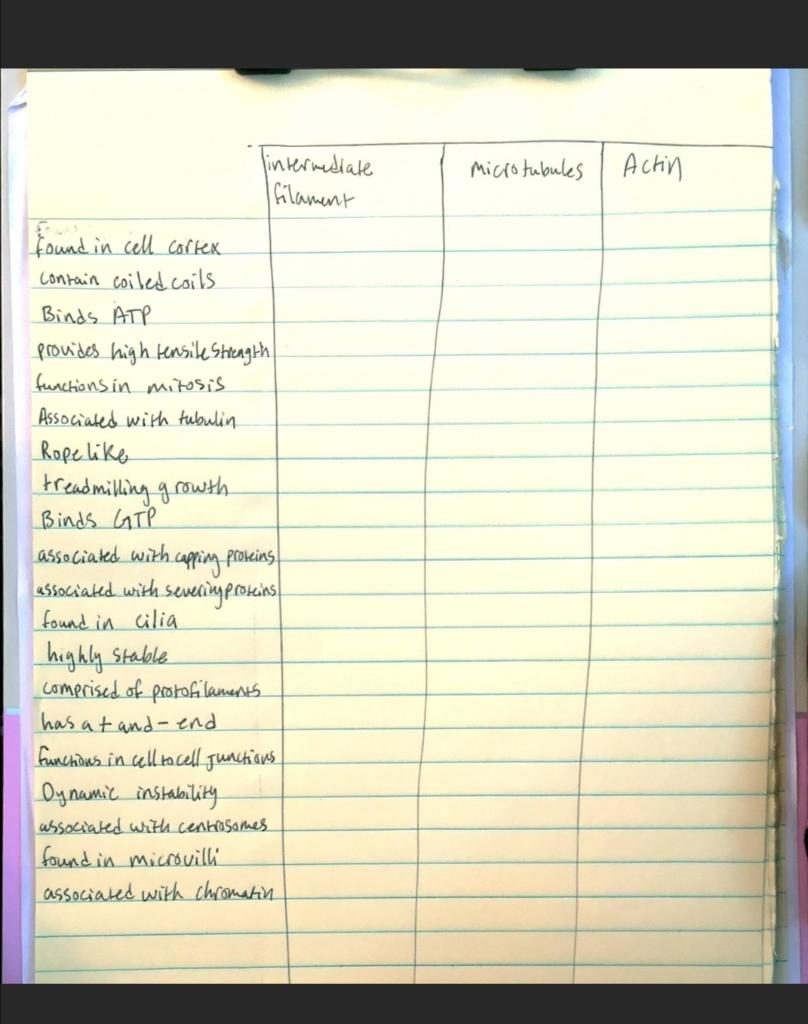 intermediate
filament
microtubules
Actin
found in cell cortex
contain coiled coils
Binds ATP
provides high tensile strength
functions in mitosis
Associated with tubulin
Rope like
treadmilling growth
Binds GTP
associated with capping proteins
associated with severing proteins
found in cilia
highly stable
comprised of protofilaments
has a + and - end
functions in cell to cell junctions
Dynamic instability
associated with centrosomes
found in microvilli
associated with chromatin